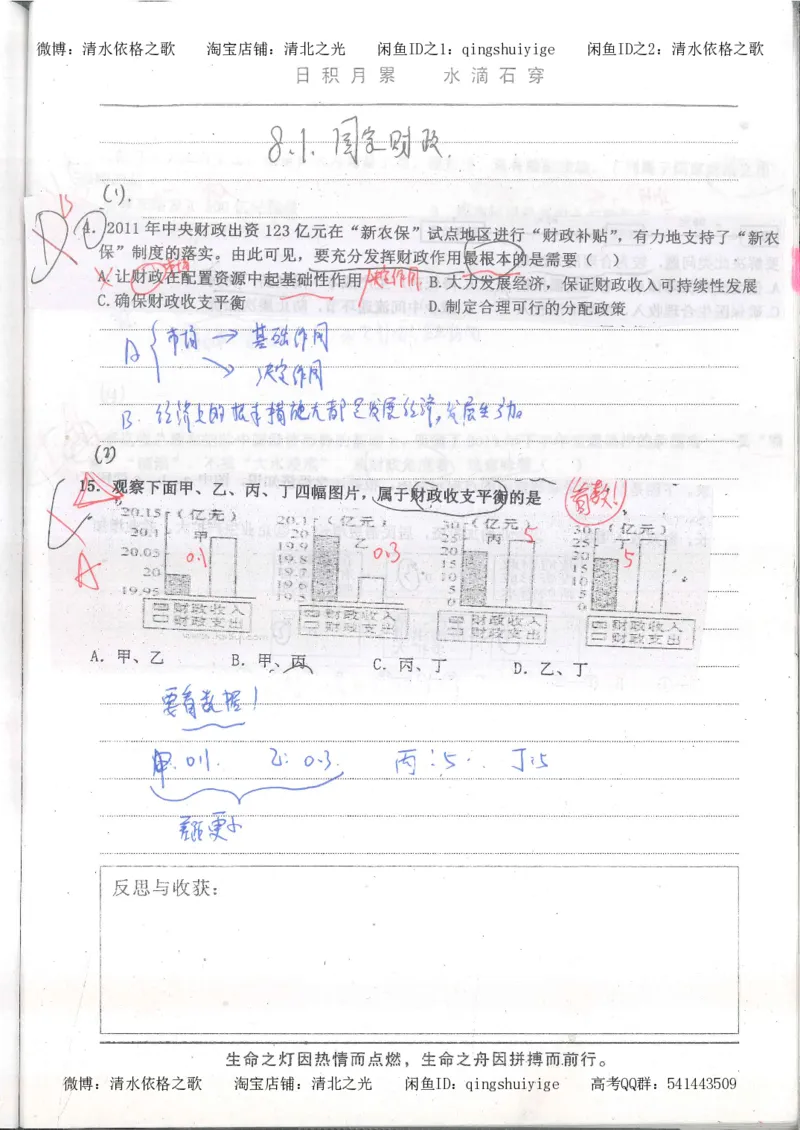 微博：清水依格之歌 淘宝店铺：清北之光 闲鱼ID之1：qingshuiyige 闲鱼ID之2：清水依格之歌
日积月累 水滴石穿
8.1. 国家财政
(1).
D B
4. 2011年中央财政出资123亿元在“新农保”试点地区进行“财政补贴”，有力地支持了“新农
保”制度的落实。由此可见，要充分发挥财政作用最根本的是需要（ ）
市场
A.让财政在配置资源中起基础性作用 决定作用 B.大力发展经济，保证财政收入可持续性发展
C.确保财政收支平衡 D.制定合理可行的分配政策
A { 市场 → 基础作用
→ 决定作用
B. 经济上的根本措施大都是发展经济，发展生力。
15. 观察下面甲、乙、丙、丁四幅图片，属于财政收支平衡的是 看数！
C A
20.15 （亿元） 20.1 （亿元） 30 （亿元） 30 （亿元）
20.1 甲 20 乙 25 丙 5 25 丁
20.05 0.1 19.9 0.3 20 20 5
20 19.8 15 15
19.95 19.7 10 10
19.6 5 5
19.5 0 0
财政收入 财政收入 财政收入 财政收入
财政支出 财政支出 财政支出 财政支出
A. 甲、乙 B. 甲、丙 C. 丙、丁 D. 乙、丁
要看数据！
甲：0.1. 乙：0.3. 丙：5. 丁：5
差距更小
反思与收获：
生命之灯因热情而点燃，生命之舟因拼搏而前行。
微博：清水依格之歌 淘宝店铺：清北之光 闲鱼ID：qingshuiyige 高考QQ群：541443509